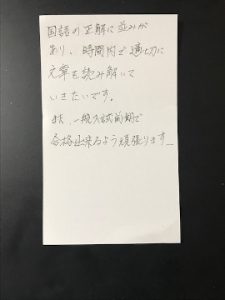 国語の正解に並みが
あり、時間内で適切に
文章を読み解いて
いきたいです。
また、一般入試前期で
合格出来るよう頑張ります